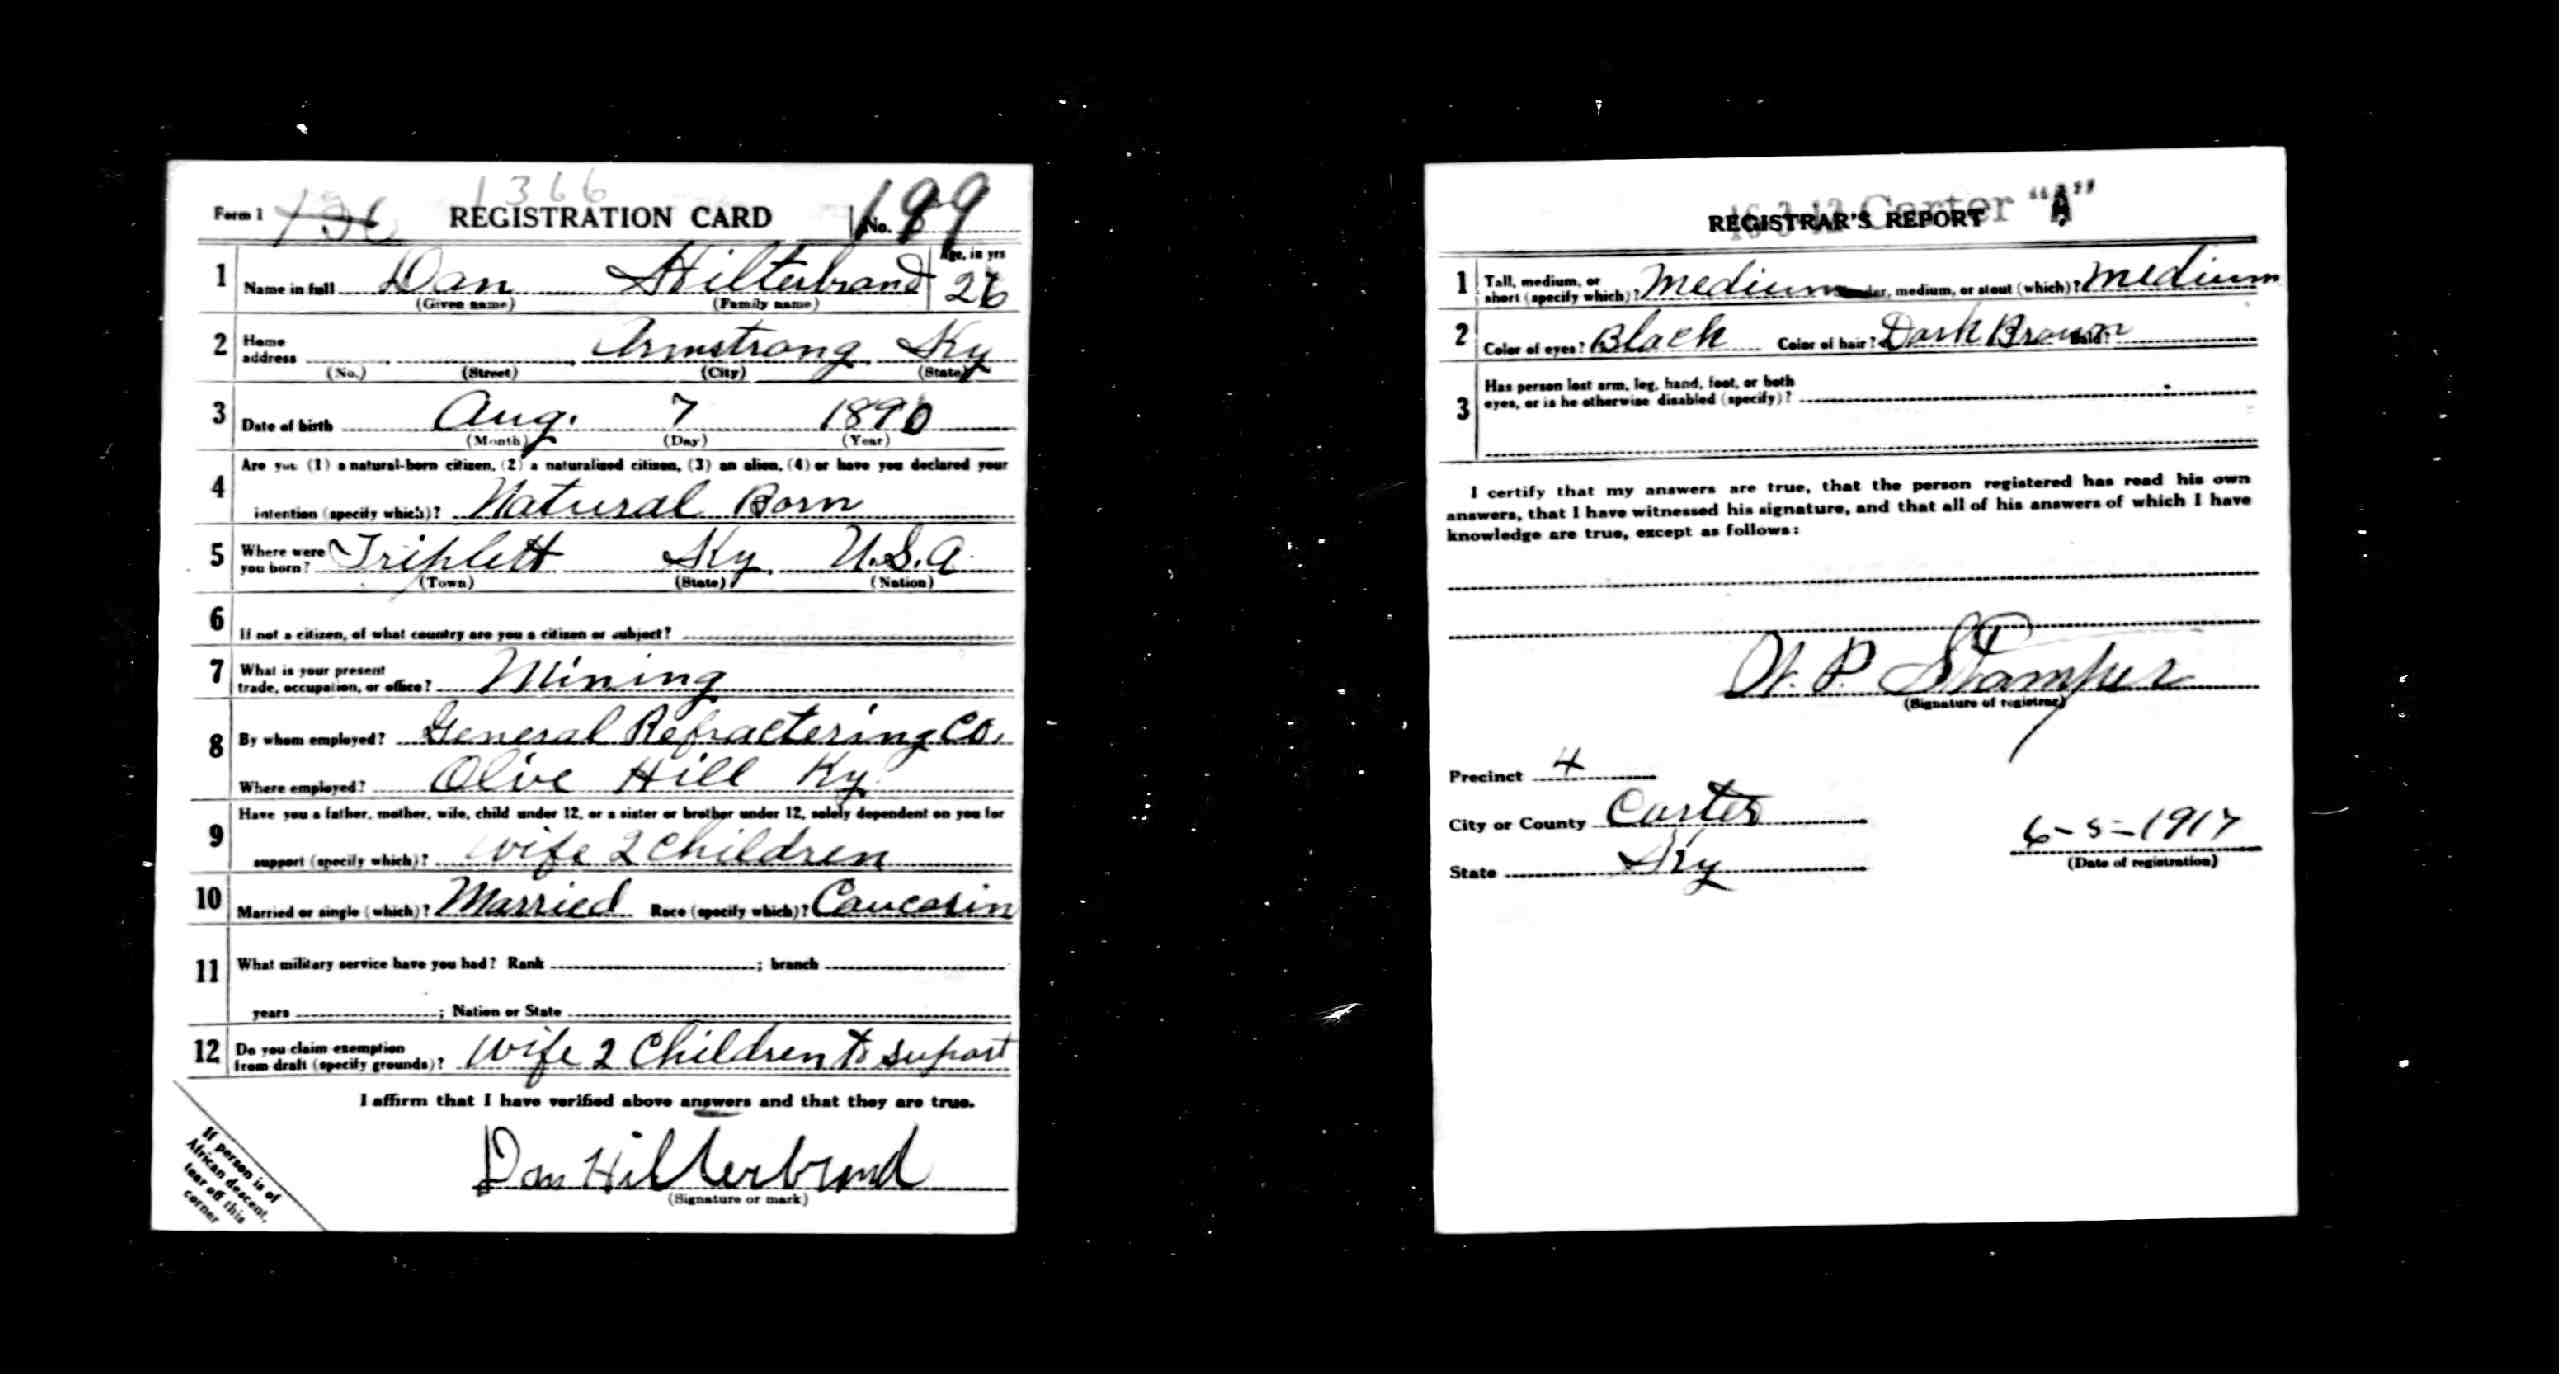 1366
Form 1 REGISTRATION CARD No. 199
1 Name in full Dan Hilterbrand Age, in yrs 26
(Given name) (Family name)
2 Home address Armstrong Ky
(No.) (Street) (City) (State)
3 Date of birth Aug. 7 1890
(Month) (Day) (Year)
4 Are you (1) a natural-born citizen, (2) a naturalized citizen, (3) an alien, (4) or have you declared your
intention (specify which)? Natural Born
5 Where were you born? Triplett Ky, U.S.A
(Town) (State) (Nation)
6 If not a citizen, of what country are you a citizen or subject?
7 What is your present
trade, occupation, or office? Mining
8 By whom employed? General Refractering Co.
Where employed? Olive Hill Ky
9 Have you a father, mother, wife, child under 12, or a sister or brother under 12, solely dependent on you for
support (specify which)? Wife 2 Children
10 Married or single (which)? Married Race (specify which)? Caucasin
11 What military service have you had? Rank ; branch
years ; Nation or State
12 Do you claim exemption
from draft (specify grounds)? Wife 2 Children to suport
I affirm that I have verified above answers and that they are true.
Dan Hilterbrand
(Signature or mark)
If person is of
African descent,
tear off this
corner
Carter "A"
REGISTRAR'S REPORT
1 Tall, medium, or
short (specify which)? Medium Slender, medium, or stout (which)? Medium
2 Color of eyes? Black Color of hair? Dark Brown Bald?
3 Has person lost arm, leg, hand, foot, or both
eyes, or is he otherwise disabled (specify)?
I certify that my answers are true, that the person registered has read his own
answers, that I have witnessed his signature, and that all of his answers of which I have
knowledge are true, except as follows:
W. P. Stamper
(Signature of registrar)
Precinct 4
City or County Carter
6-5-1917
State Ky
(Date of registration)